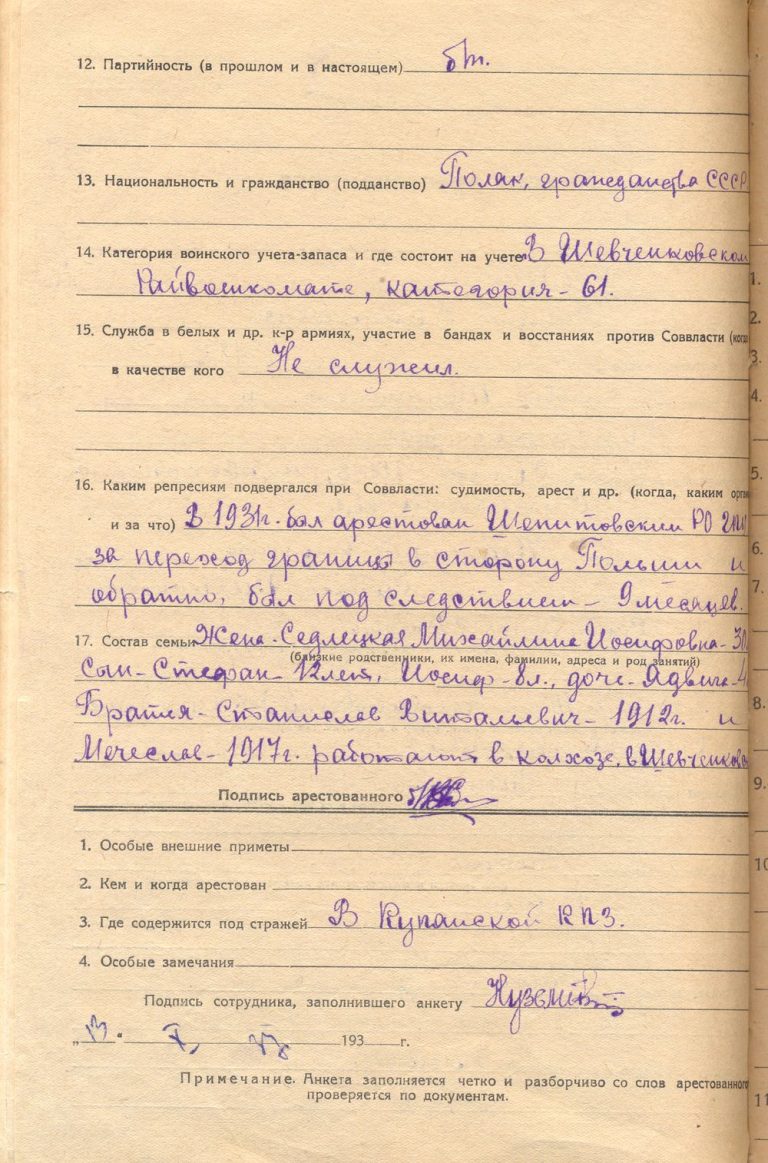 12. Партийность (в прошлом и в настоящем) б/п.
13. Национальность и гражданство (подданство) Поляк, гражданства СССР
14. Категория воинского учета-запаса и где состоит на учете В Шевченковском
Райвоенкомате, категория - 61.
15. Служба в белых и др. к-р армиях, участие в бандах и восстаниях против Соввласти (когда
в качестве кого Не служил.
16. Каким репресиям подвергался при Соввласти: судимость, арест и др. (когда, каким орга
и за что) В 1931г. был арестован Шепитовским РО ГПУ
за переход границы в сторону Польши и
обратно, был под следствием - 9 месяцев.
17. Состав семьи Жена - Седлецкая Михайлина Иосифовна - 30
(близкие родственники, их имена, фамилии, адреса и род занятий)
Сын - Стефан - 12 лет, Иосиф - 8 л., дочь - Ядвига - 4
Братья - Станислав Витальевич - 1912г. и
Мечеслав - 1917г. работают в колхозе, в Шевченково
Подпись арестованного
1. Особые внешние приметы
2. Кем и когда арестован
3. Где содержится под стражей В Купянской КПЗ.
4. Особые замечания
Подпись сотрудника, заполнившего анкету
„13" X, 193 г.
Примечание. Анкета заполняется четко и разборчиво со слов арестованного
проверяется по документам.
1.
2.
3.
4.
5.
6.
7.
8.
9.
10
11